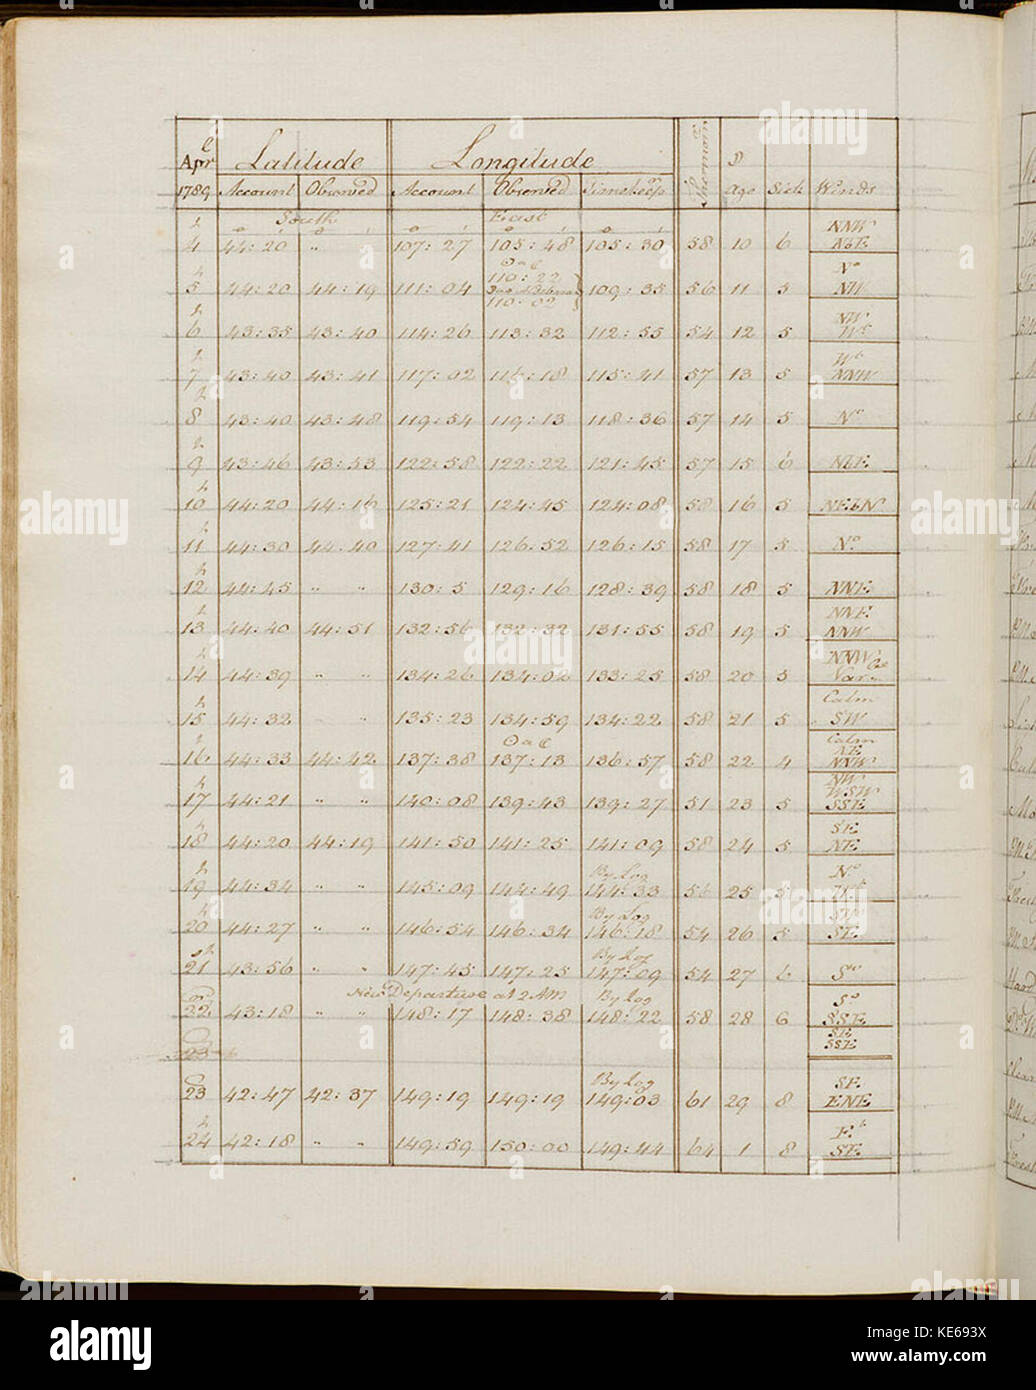 Aprl Latitude Longitude Thermomr D
1789 Account Observed Account Observed Timekeepr Age Sick Winds
South East
4 44:20 " 107:27 105:48 105:30 58 10 6 NNW NbE
110:22
5 44:20 44:19 111:04 110:02 109:35 56 11 5 No NW
6 43:35 43:40 114:26 113:32 112:55 54 12 5 NW
7 43:40 43:41 117:02 116:18 115:41 57 13 5 NNW
8 43:40 43:48 119:54 119:13 118:36 57 14 5 No
9 43:46 43:53 122:58 122:22 121:45 57 15 6 NbE
10 44:20 44:16 125:21 124:45 124:08 58 16 5 NEbN
11 44:30 44:40 127:41 126:52 126:15 58 17 5 No
12 44:45 " " 130:5 129:16 128:39 58 18 5 NNE
13 44:40 44:51 132:56 132:32 131:55 58 19 5 NNE NNW
14 44:39 " " 134:26 134:02 133:25 58 20 5 NNW Var
15 44:32 " 135:23 134:59 134:22 58 21 5 Calm SW
16 44:33 44:42 137:38 137:13 136:57 58 22 4 Calm NE NNW
17 44:21 " " 140:08 139:43 139:27 51 23 5 NW WSW SSE
18 44:20 44:19 141:50 141:25 141:09 58 24 5 SE NE
By Log
19 44:34 " " 145:09 144:49 144:33 56 25 5 No
By Log
20 44:27 " " 146:54 146:34 146:18 54 26 5 SW SE
By Log
21 43:56 " " 147:45 147:25 147:09 54 27 6 Sw
New Departure at 2 AM By Log
22 43:18 " " 148:17 148:38 148:22 58 28 6 So SSE
23 SE SSE
By Log
23 42:47 42:37 149:19 149:19 149:03 61 29 8 SE ENE
24 42:18 " " 149:59 150:00 149:44 64 1 8 SE
alamy
Image ID: KE693X
www.alamy.com